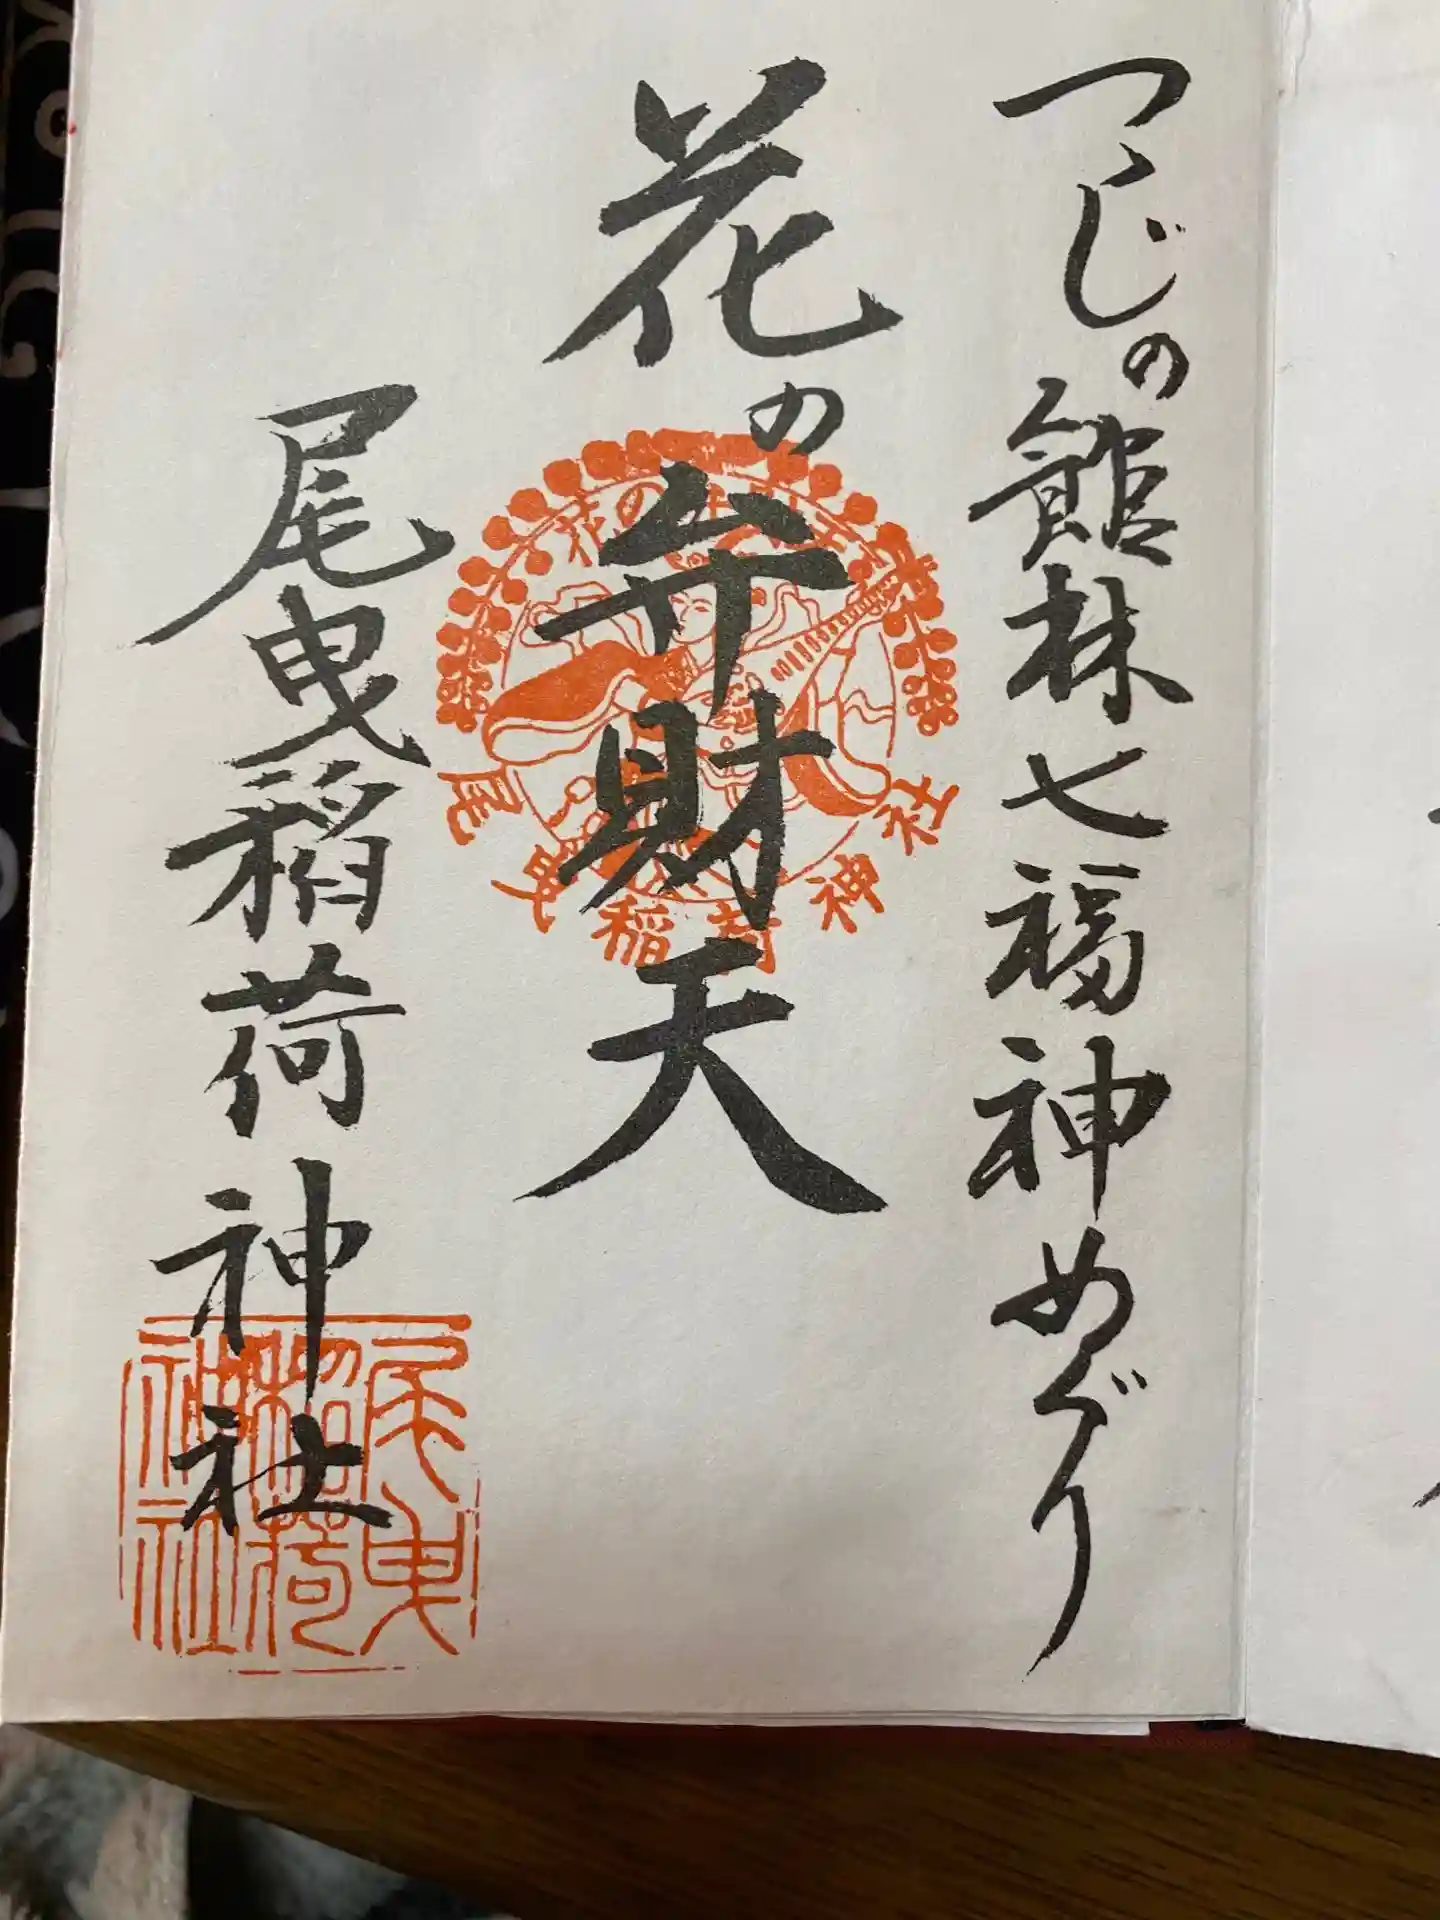 つつじの館林七福神めぐり
花の弁財天
尾曳稲荷神社
尾曳稲荷神社
尾曳稲荷神社